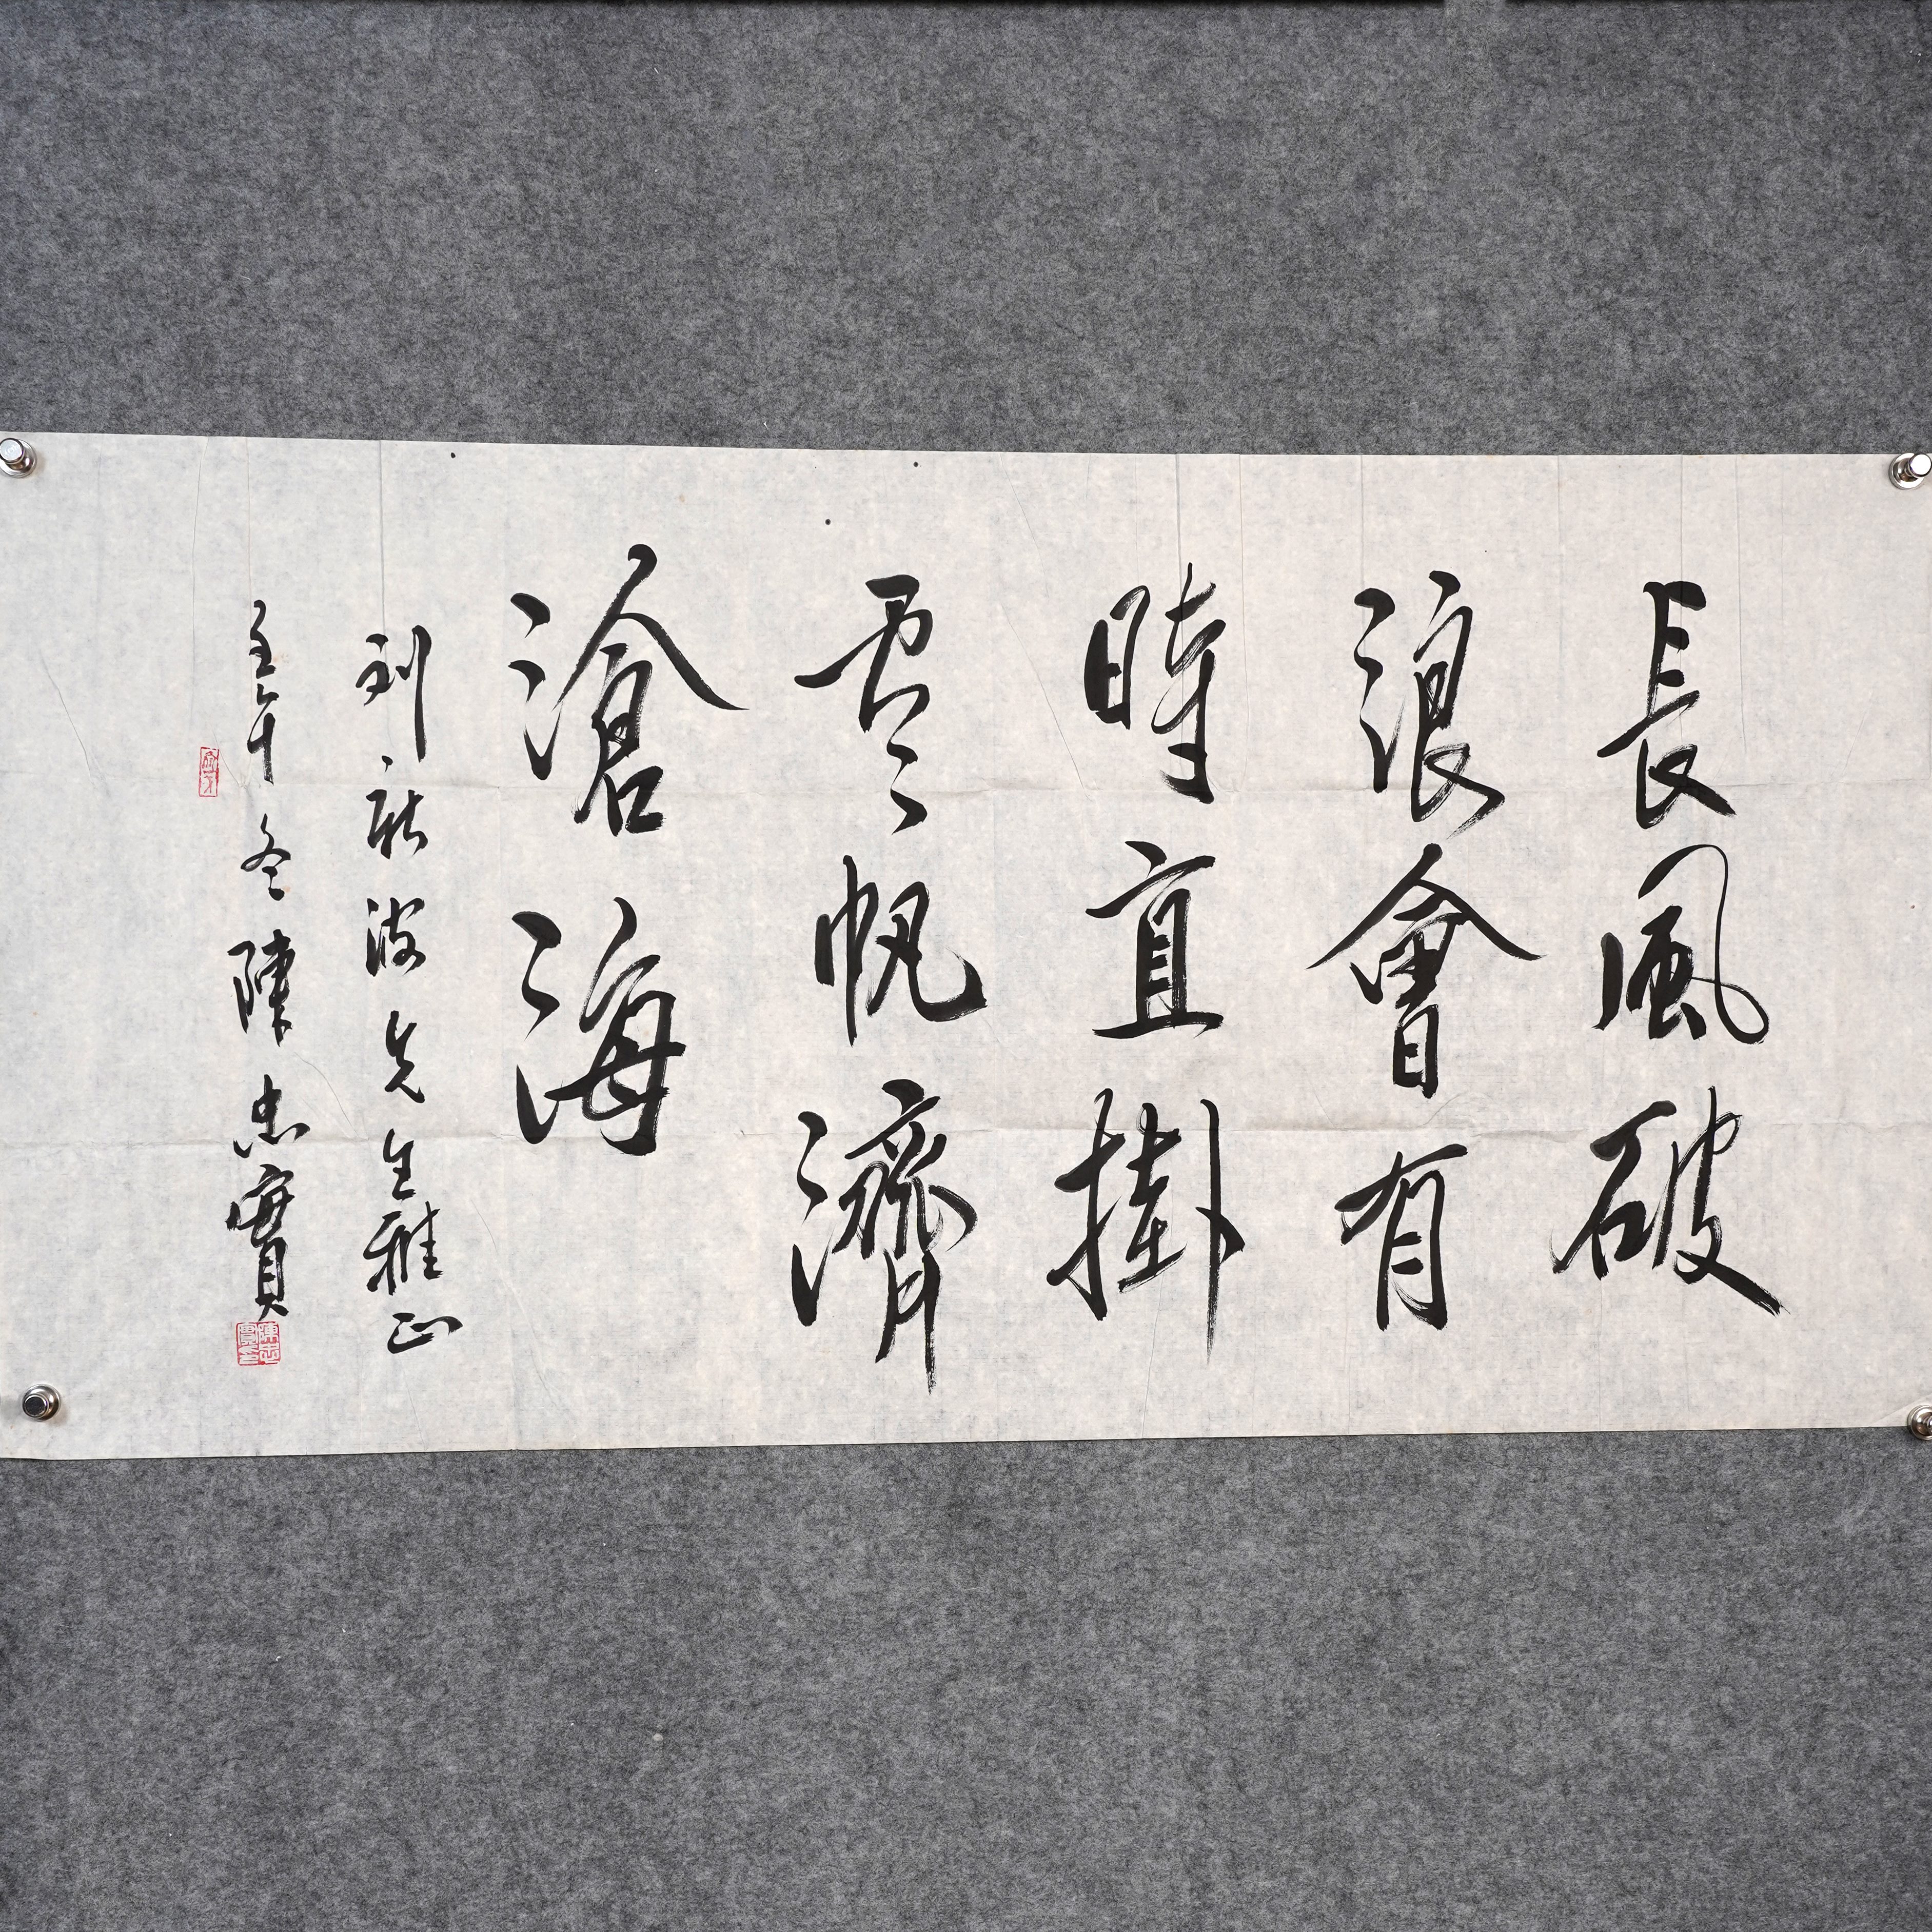 長風破
浪會有
時直掛
雲帆濟
滄海
新波先生雅正
冬陳忠實
陳忠實印